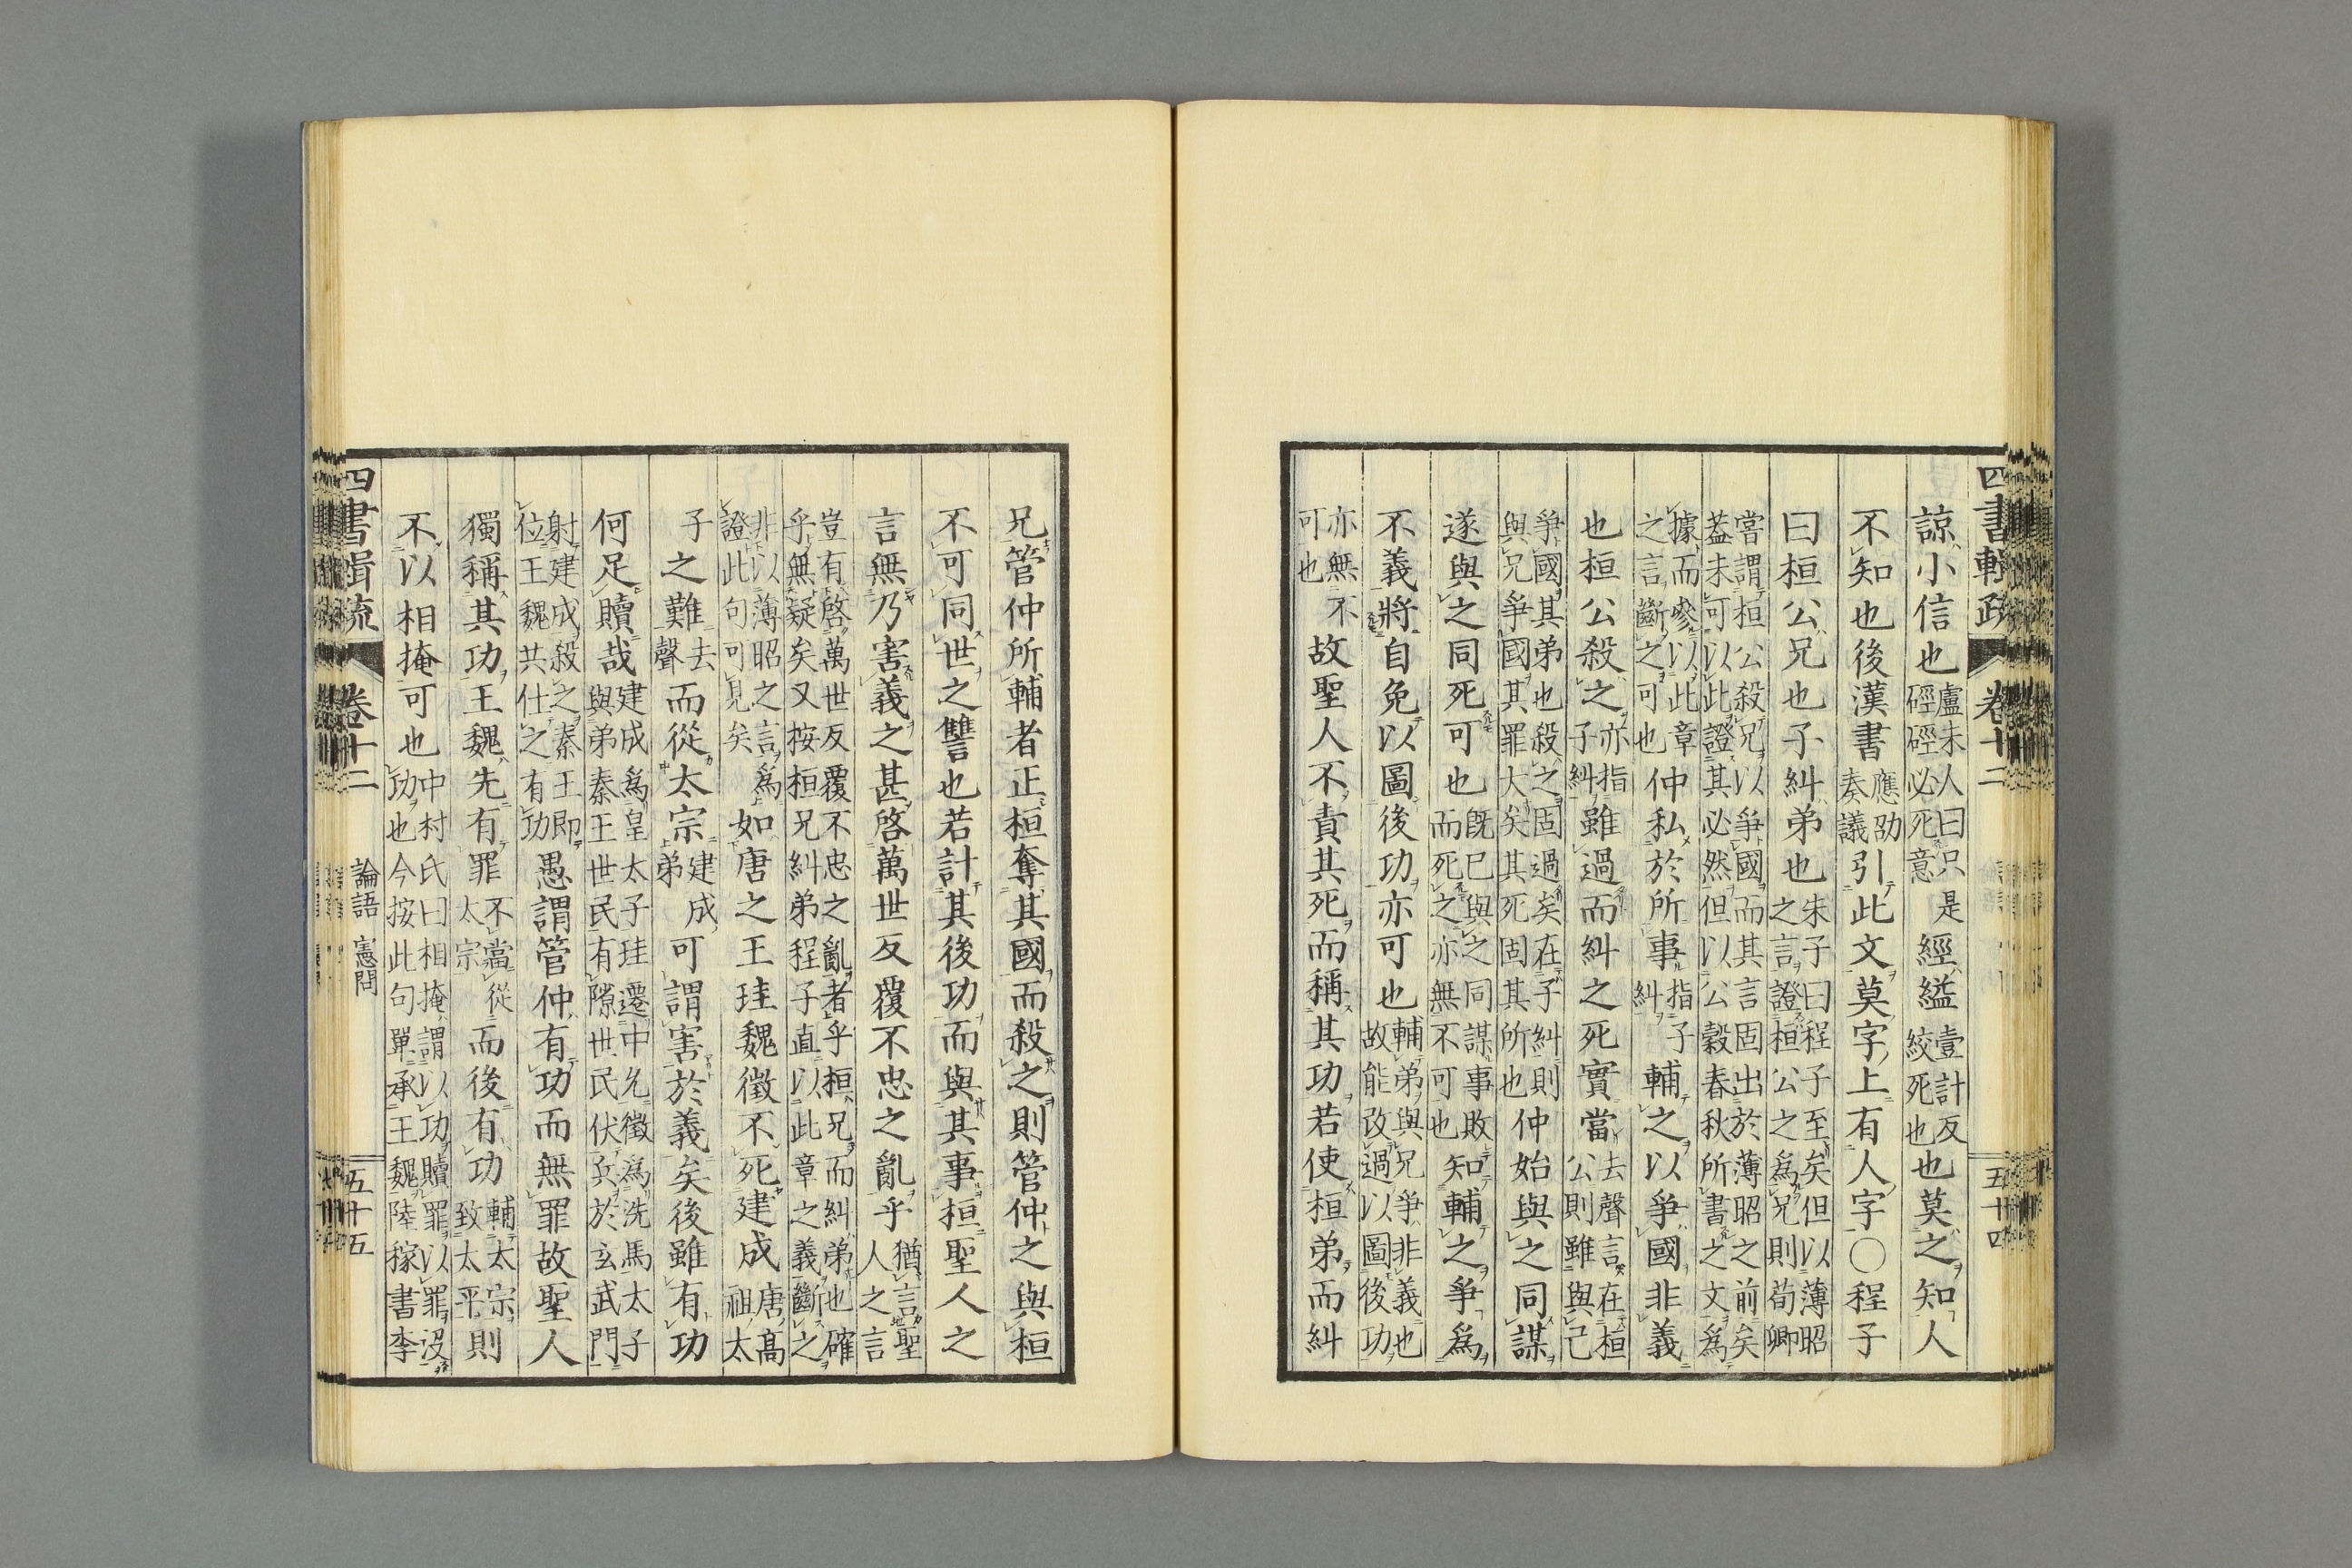 諒小信也盧未人曰只是硜硜必死意經縊壹計反絞死也莫之知人
不知也後漢書應劭奏議引此文莫字上有人字○程子
曰桓公兄也子糾弟也朱子曰程子至矣但以薄昭之言證桓公之為兄則荀卿
嘗謂桓公殺兄以爭國而其言固出於薄昭之前矣蓋未可以此證其必然但以公穀春秋所書之文為
據而參以此章之言斷之可也仲私於所事指子糾輔之以爭國非義
也桓公殺之亦指子糾雖過而糾之死實當去聲言在桓公則雖與己
爭國其弟也殺之固過矣在子糾則與兄爭國其罪大矣其死固其所也仲始與之同謀
遂與之同死可也旣已與之同謀事敗而死之亦無不可也知輔之爭為
不義將自免以圖後功亦可也輔弟與兄爭非義也故能改過以圖後功
亦無不可也故聖人不責其死而稱其功若使桓弟而糾
兄管仲所輔者正桓奪其國而殺之則管仲之與桓
不可同世之讐也若計其後功而與其事桓聖人之
言無乃害義之甚啓萬世反覆不忠之亂乎猶言聖人之言
豈有啓萬世反覆不忠之亂者乎桓兄而糾弟也確乎無疑矣又按桓兄糾弟程子直以此章之義斷之
非以薄昭之言為證此句可見矣如唐之王珪魏徵不死建成唐高祖太
子之難去聲而從太宗建成弟可謂害於義矣後雖有功
何足贖哉建成為皇太子珪遷中允徵為洗馬太子與弟秦王世民有隙世民伏兵於玄武門
射建成殺之秦王即位王魏共仕之有功愚謂管仲有功而無罪故聖人
獨稱其功王魏先有罪不當從太宗而後有功輔太宗致太平則
不以相掩可也中村氏曰相掩謂以功贖罪以罪沒功也今按此句單承王魏陸稼書李
四書輯疏
卷十二
論語 憲問
五十五
卷十二
五十四